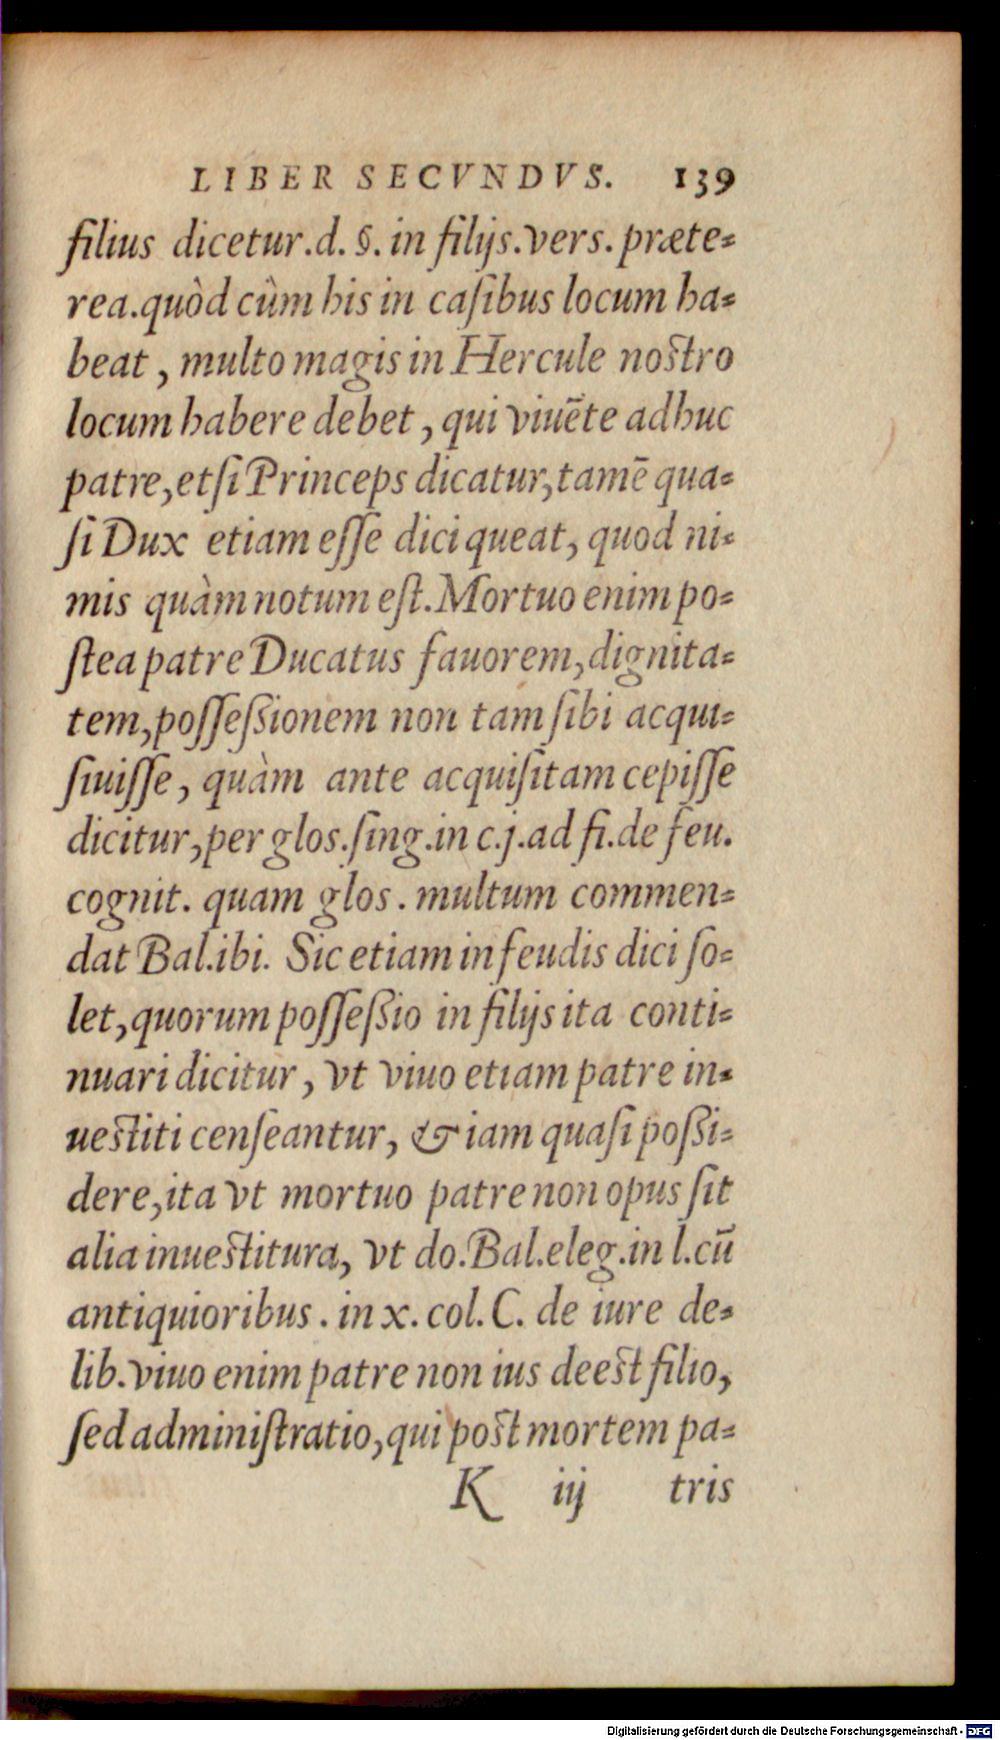 LIBER SECVNDVS. 139
filius dicetur.d. §. in filijs.vers. præte-
rea.quòd cùm his in caſibus locum ha-
beat, multo magis in Hercule noſtro
locum habere debet, qui viuẽte adhuc
patre,etſi Princeps dicatur,tamẽ qua-
ſi Dux etiam eſſe dici queat, quod ni-
mis quàm notum eſt.Mortuo enim po-
ſtea patre Ducatus fauorem,dignita-
tem,poſſeßionem non tam ſibi acqui-
ſiuiſſe, quàm ante acquiſitam cepiſſe
dicitur,per glos.ſing.in c.j.ad fi.de feu.
cognit. quam glos. multum commen-
dat Bal.ibi. Sic etiam in feudis dici ſo-
let,quorum poſſeßio in filijs ita conti-
nuari dicitur, vt viuo etiam patre in-
ueſtiti cenſeantur, & iam quaſi poßi-
dere,ita vt mortuo patre non opus ſit
alia inueſtitura, vt do.Bal.eleg.in l.cũ
antiquioribus. in x. col. C. de iure de-
lib.viuo enim patre non ius deeſt filio,
ſed adminiſtratio,qui poſt mortem pa-
K iij tris
Digitalisierung gefördert durch die Deutsche Forschungsgemeinschaft - DFG